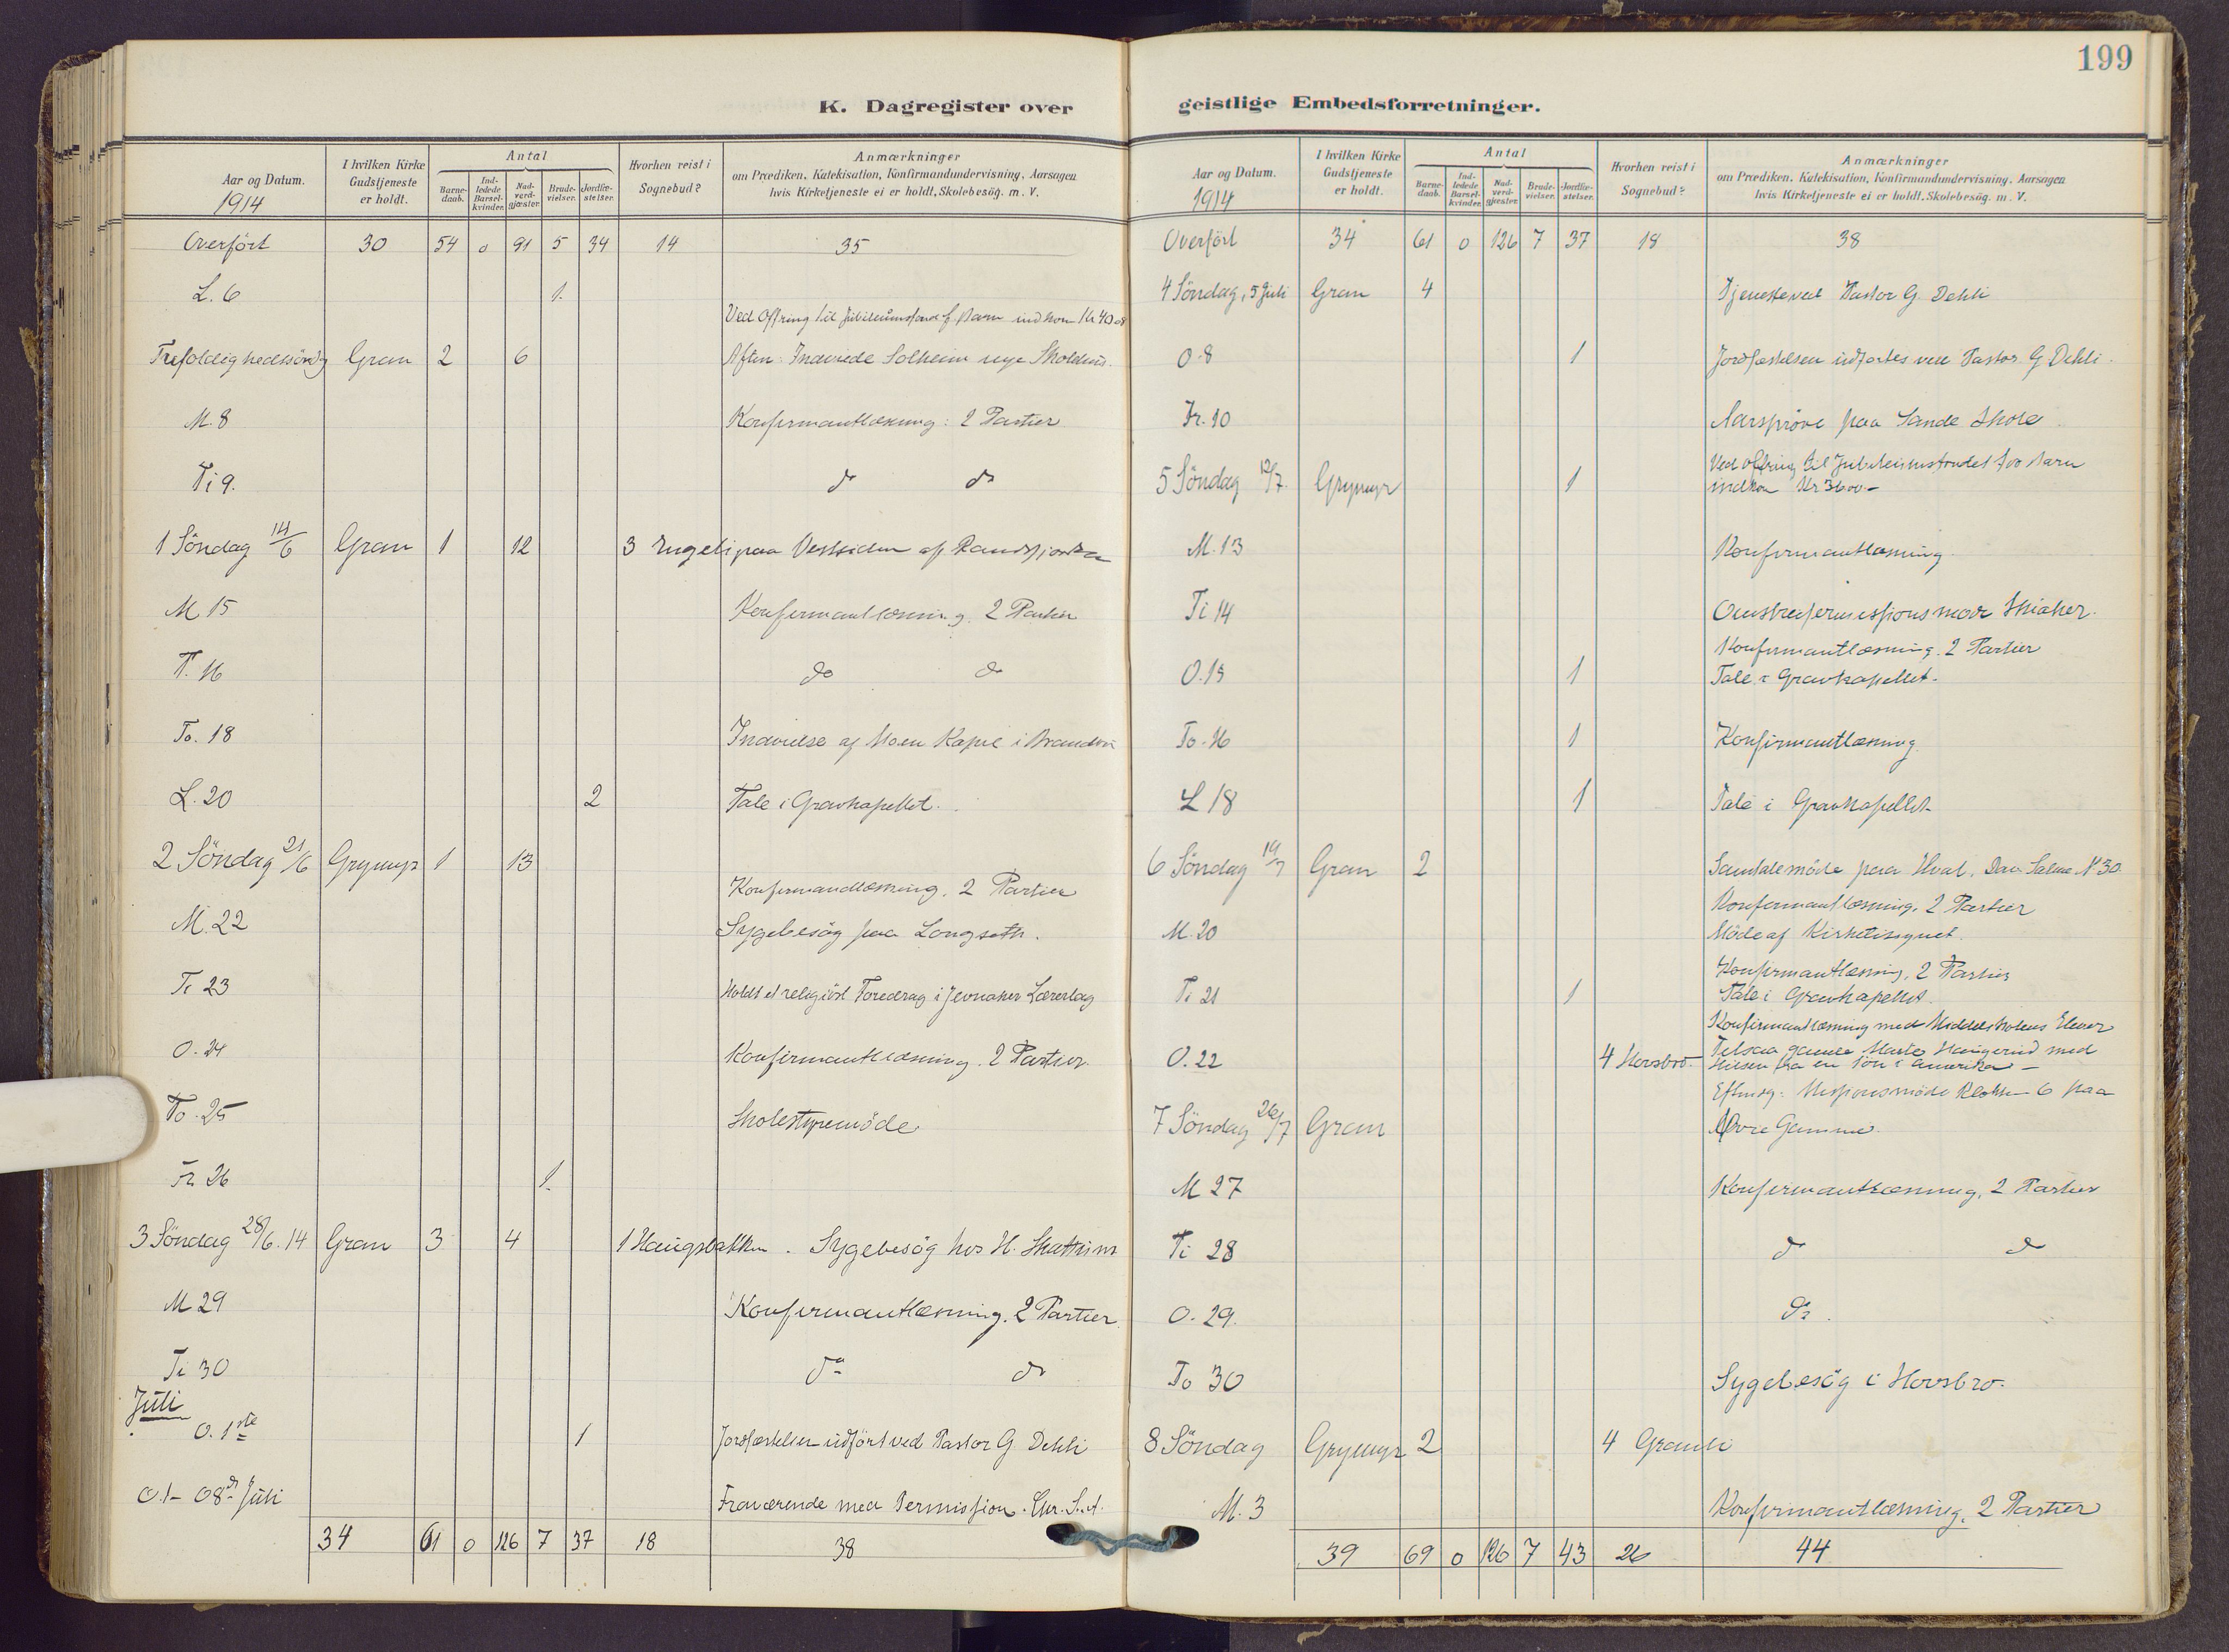 199
K. Dagregister over
Aar og Datum.
1914
I hvilken Kirke Gudstjeneste er holdt.
Antal
Barne-daab.
Ind-ledede Barsel-kvinder.
Nad-verd-gjæster.
Brude-vielser.
Jordfæ-stelser.
Hvorhen reist i Sognebud?
Anmærkninger
om Prædiken, Katekisation, Konfirmandundervisning, Aarsagen
hvis Kirketjeneste ei er holdt, Skolebesög. m. V.
Overfört 30 54 0 91 5 34 14 35
L. 6 1.
Ved Offring til Jubilæumsfond f. Barn indkom Kr 40
Trefoldighedssöndg Gran 2 6 Aften: Indviede Solheim nye Skolehus.
M. 8 Konfirmantlæsning: 2 Partier
Ti 9. do do
1 Söndag 14/6 Gran 1 12 3 Engeli paa Vestsiden af Randsfjorden
M 15 Konfirmantlæsning. 2 Partier
T. 16 do do
To. 18 Indvielse af Moen Kapel i Brandbu
L. 20 2 Tale i Gravkapellet.
2 Söndag 21/6 Grymyr 1 13
Konfirmandlæsning. 2 Partier
M. 22 Sygebesög paa Longseth.
Ti 23 Holdt et religiöst Foredrag i Jevnaker Lærerlag
O. 24 Konfirmantlæsning. 2 Partier.
To. 25 Skolestyremöde
Fr. 26 1.
3 Söndag 28/6. 14 Gran 3 4 1 Haugsbakken. Sygebesög hos H. Skattum
M 29 Konfirmantlæsning. 2 Partier
Ti 30 do do
Juli
O. 1ste 1 Jordfæstelsen udfört ved Pastor G. Dehli
O.1 - O8de Juli Fraværende med Permission. Chr. S.
34 61 0 126 7 37 18 38
geistlige Embedsforretninger.
Aar og Datum.
1914
I hvilken Kirke Gudstjeneste er holdt.
Antal
Barne-daab.
Ind-ledede Barsel-kvinder.
Nad-verd-gjæster.
Brude-vielser.
Jordfæ-stelser.
Hvorhen reist i Sognebud?
Anmærkninger
om Prædiken, Katekisation, Konfirmandundervisning, Aarsagen
hvis Kirketjeneste ei er holdt, Skolebesög. m. V.
Overfört 34 61 0 126 7 37 18 38
4 Söndag, 5 Juli Gran 4 Tjeneste ved Pastor G. Dehli
O. 8 1 Jordfæstelsen udfortes ved Pastor G. Dehli.
Fr. 10 Aarspröve paa Sande Skole
Ved offring til Jubilæumsfondet for Barn
5 Söndag 12/7 Grymyr 1 indkom Kr 36 00 -
M. 13 Konfirmantlæsning.
Ti 14
Konfirmantlæsning. 2 Partier
O. 15 1 Tale i Gravkapellet.
To. 16 1 Konfirmantlæsning
L 18 1 Tale i Gravkapellet
6 Söndag 19/7 Gran 2 Samtalemöde paa Hval, Dav. Salme N° 30.
Konfirmantlæsning. 2 Partier
M. 20 Möde af Kirketilsynet.
Konfirmantlæsning, 2 Partier
Ti 21 1 Tale i Gravkapellet.
Konfirmantlæsning med Middelskolens Elever
O. 22 4 Horsbro. gamle Marte Haugerud med
Hilsen fra en Sön i Amerika -
Eftmdg: Missionsmöde Klokken 6 paa
7 Söndag 26/7 Gran Övre Gamme
M 27 Konfirmantlæsning, 2 Partier
Ti 28 do do
O. 29. do.
To 30 Sygebesög i Horsbro.
8 Söndag Grymyr 2 4 Granli
M. 3 Konfirmantlæsning. 2 Partier
39 69 0 126 7 43 26 44